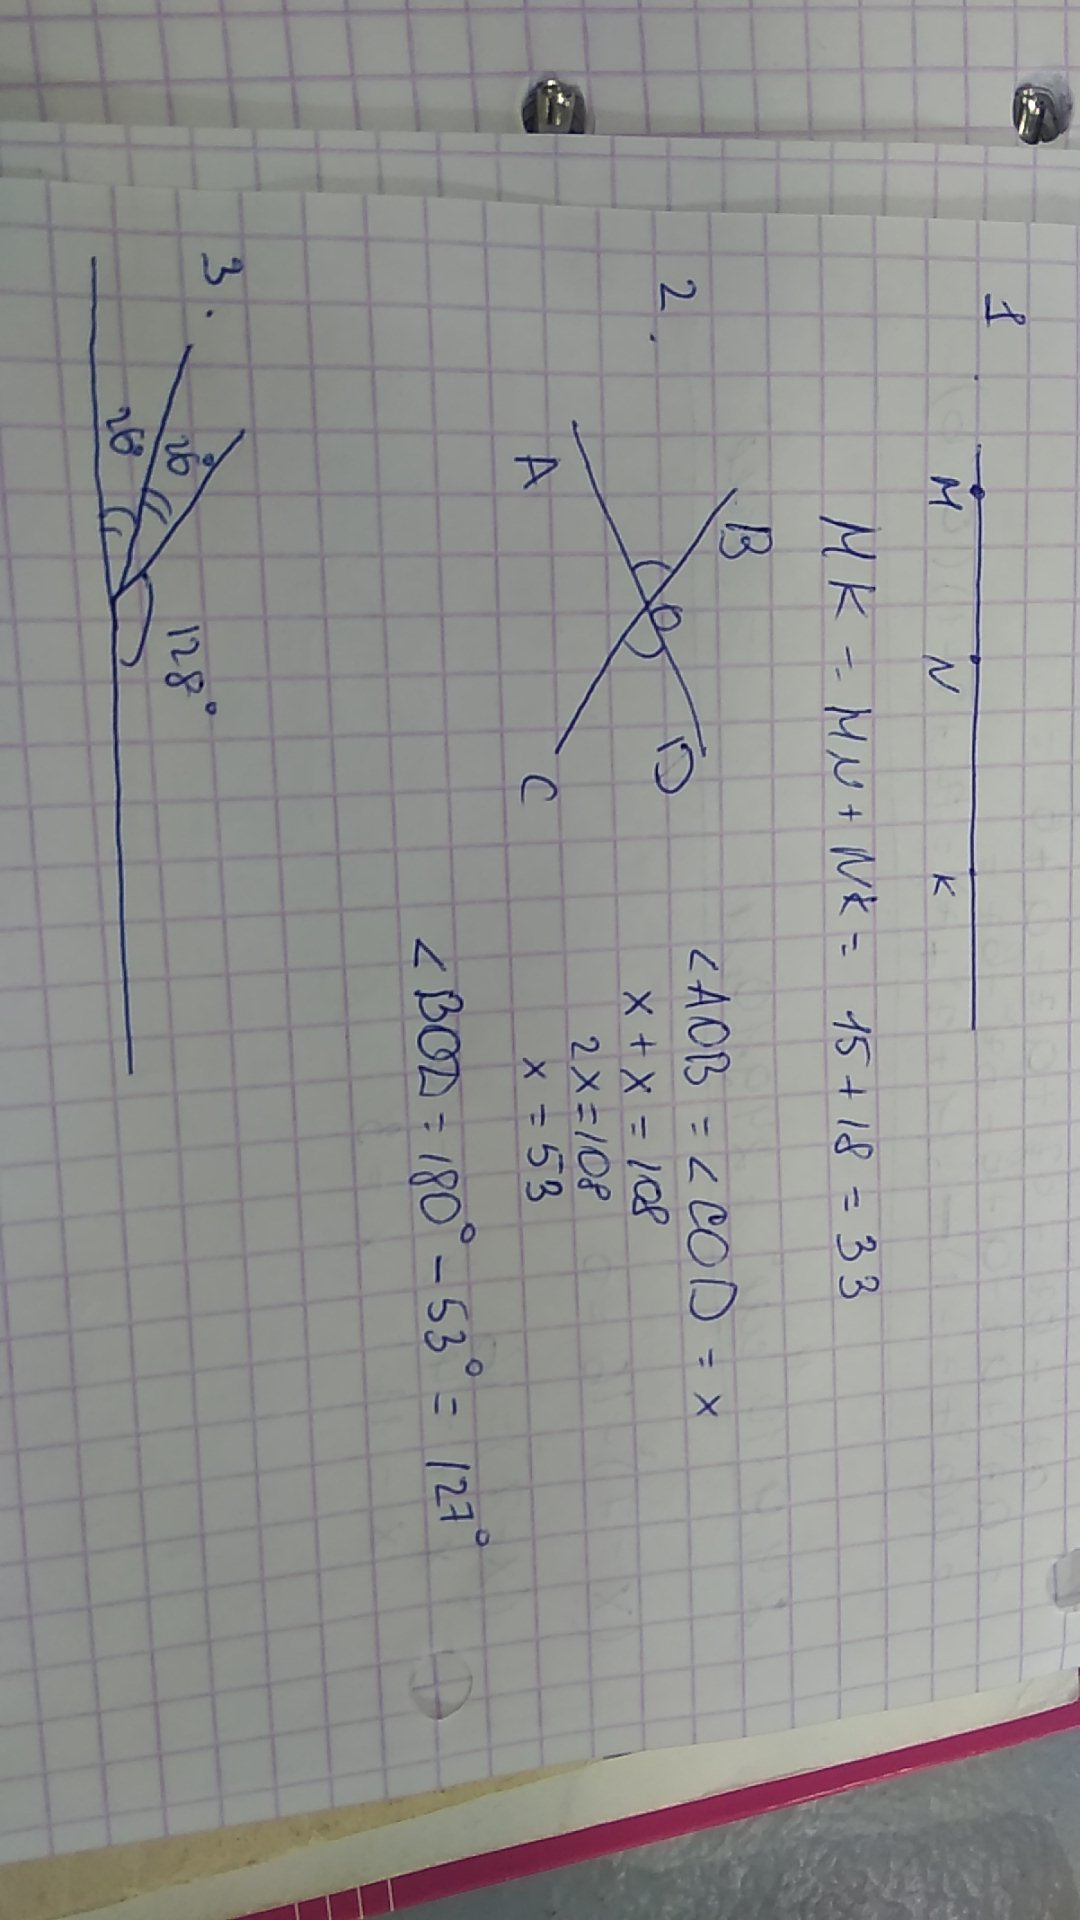 1
M N K
MK = MN + NK = 15 + 18 = 33
2.
B
A O D
C
<AOB = <COD = x
x + x = 108
2x = 108
x = 53
<BOD = 180° - 53° = 127°
3.
26° 128°
26°